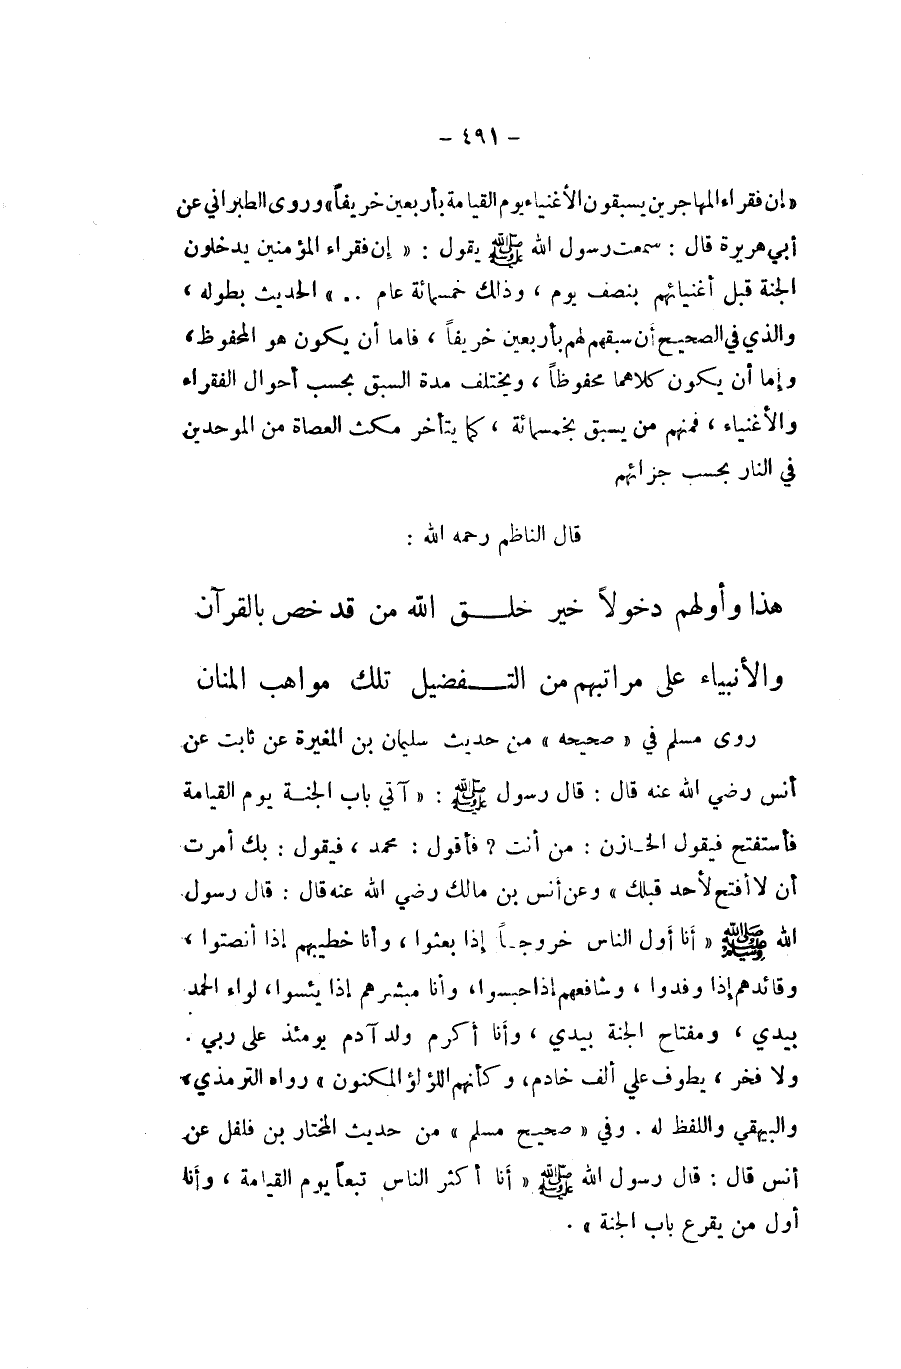 – ٤٩١ –
«إن فقراء المهاجرين يسبقون الأغنياء يوم القيامة بأربعين خريفاً» وروى الطبراني عن
أبي هريرة قال : سمعت رسول الله ﷺ يقول : « إن فقراء المؤمنين يدخلون
الجنة قبل أغنيائهم بنصف يوم ، وذلك خمسمائة عام .. » الحديث بطوله ،
والذي في الصحيح أن سبقهم لهم بأربعين خريفاً ، فاما أن يكون هو المحفوظ ،
وإما أن يكون كلاهما محفوظاً ، ويختلف مدة السبق بحسب أحوال الفقراء
والأغنياء ، فمنهم من يسبق بخمسمائة ، كما يتأخر مكث العصاة من الموحدين
في النار بحسب جزائهم
قال الناظم رحمه الله :
هذا وأولهم دخولاً خير خلـــق الله من قد خص بالقرآن
والأنبياء على مراتبهم من التـــفضيل تلك مواهب المنان
روى مسلم في « صحيحه » من حديث سليمان بن المغيرة عن ثابت عن
أنس رضي الله عنه قال : قال رسول ﷺ : « آتي باب الجنــة يوم القيامة
فأستفتح فيقول الخازن : من أنت ؟ فأقول : محمد ، فيقول : بك أمرت
أن لا أفتح لأحد قبلك » وعن أنس بن مالك رضي الله عنه قال : قال رسول
الله ﷺ « أنا أول الناس خروجاً إذا بعثوا ، وأنا خطيبهم إذا أنصتوا ،
وقائدهم إذا وفدوا ، وشافعهم إذا حبسوا، وأنا مبشرهم إذا يئسوا، لواء الحمد
بيدي ، ومفتاح الجنة بيدي ، وأنا أكرم ولد آدم يومئذ على ربي .
ولا فخر ، يطوف علي ألف خادم، وكأنهم اللؤلؤ المكنون » رواه الترمذي،
والبيهقي واللفظ له . وفي « صحيح مسلم » من حديث المختار بن فلفل عن
أنس قال : قال رسول الله ﷺ « أنا أكثر الناس تبعاً يوم القيامة ، وأنا
أول من يقرع باب الجنة » .